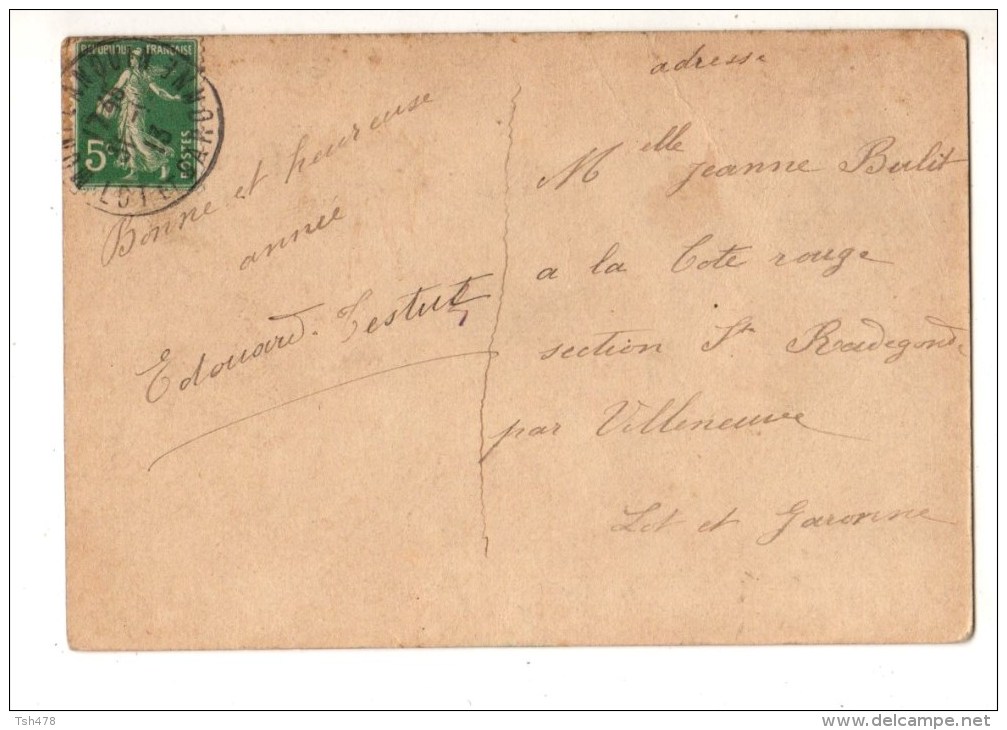 REPUBLIQUE FRANÇAISE
5c
POSTES
LOT ET GARONNE
13
Bonne et heureuse
année
Edouard. Testut
adresse
Melle Jeanne Bulit
a la Cote rouge
section St Radegonde
par Villeneuve
Lot et Garonne
Tsh478
www.delcampe.net